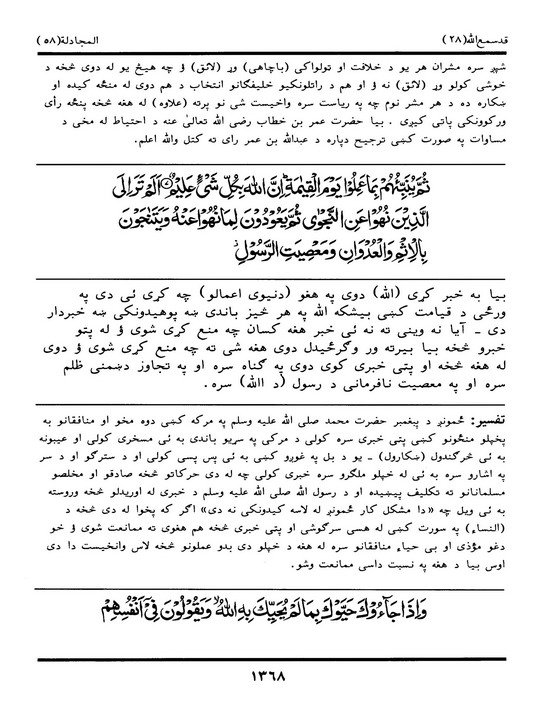 قدسمع الله(٢٨) المجادلة(٥٨)
شپږ سره مشران هر یو د خلافت او تولواکی (باچاهی) وړ (لائق) ؤ چه هیڅ یو له دوی څخه د
خوشی کولو وړ (لائق) نه ؤ او هم د راتلونکیو خلیفگانو انتخاب د هم دوی له منځه کیده او
ښکاره ده د هر مشر نوم چه په ریاست سره واخیست شی نو پرته (علاوه) له هغه څخه پنځه رأی
ورکوونکی پاتی کیږی . بیا حضرت عمر بن خطاب رضی الله تعالیٰ عنه د احتیاط له مخی د
مساوات په صورت کښی ترجیح دپاره د عبدالله بن عمر رای ته کتل والله اعلم.
ثُمَّ يُنَبِّئُهُمْ بِمَا عَمِلُوْا يَوْمَ الْقِيٰمَةِ ؕ اِنَّ اللّٰهَ بِكُلِّ شَیْءٍ عَلِيْمٌ ۝ اَلَمْ تَرَ اِلَى
الَّذِيْنَ نُهُوْا عَنِ النَّجْوٰى ثُمَّ يَعُوْدُوْنَ لِمَا نُهُوْا عَنْهُ وَيَتَنٰجَوْنَ
بِالْاِثْمِ وَالْعُدْوَانِ وَمَعْصِيَتِ الرَّسُوْلِ ؗ
بیا به خبر کړی (الله) دوی په هغو (دنیوی اعمالو) چه کړی ئی دی په
ورځی د قیامت کښی بیشکه الله په هر څیز باندی ښه پوهیدونکی ښه خبردار
دی ـ آیا نه وینی ته نه ئی خبر هغه کسان چه منع کړی شوی ؤ له پتو
خبرو څخه بیا بیرته ور وګرځیدل دوی هغه شی ته چه منع کړی شوی ؤ دوی
له هغه څخه او پتی خبری کوی دوی په گناه سره او په تجاوز دښمنی ظلم
سره او په معصیت نافرمانی د رسول (د الله) سره.
تفسیر: ځمونږ د پیغمبر حضرت محمد صلی الله علیه وسلم په مرکه کښی دوه مخو او منافقانو به
پخپلو منځونو کښی پتی خبری سره کولی د مرکی په سړیو باندی به ئی مسخری کولی او عیبونه
به ئی څرگندول (ښکارول) ـ یو د بل په غوږو کښی به ئی پس پسی کولی او د سترگو او د سر
په اشارو سره به ئی له خپلو ملگرو سره خبری کولی چه له دی حرکاتو څخه صادقو او مخلصو
مسلمانانو ته تکلیف پیښیده او د رسول الله صلی الله علیه وسلم د خبری له اوریدلو څخه وروسته
به ئی ویل چه «دا مشکل کار ځمونږ له لاسه کیدونکی نه دی» اگر که پخوا له دی څخه د
(النساء) په سورت کښی له هسی سرگوشی او پتی خبری څخه هم هغوی ته ممانعت شوی ؤ خو
دغو مؤذی او بی حیاء منافقانو سره له هغه د خپلو دی بدو عملونو څخه لاس وانخیست دا دی
اوس بیا د هغه په نسبت داسی ممانعت وشو.
وَاِذَا جَآءُوْكَ حَيَّوْكَ بِمَا لَمْ يُحَيِّكَ بِهِ اللّٰهُ ۙ وَيَقُوْلُوْنَ فِیْۤ اَنْفُسِهِمْ
١٣٦٨